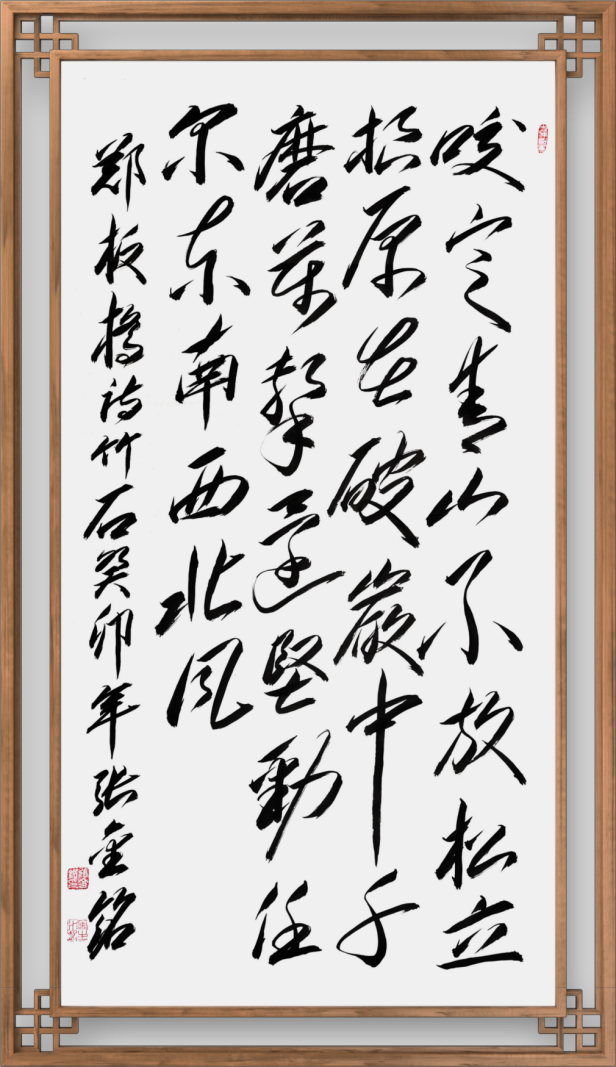 咬定青山不放松立
根原在破巖中千
磨萬擊還堅勁任
尔东南西北风
郑板橋诗竹石癸卯年张金铭